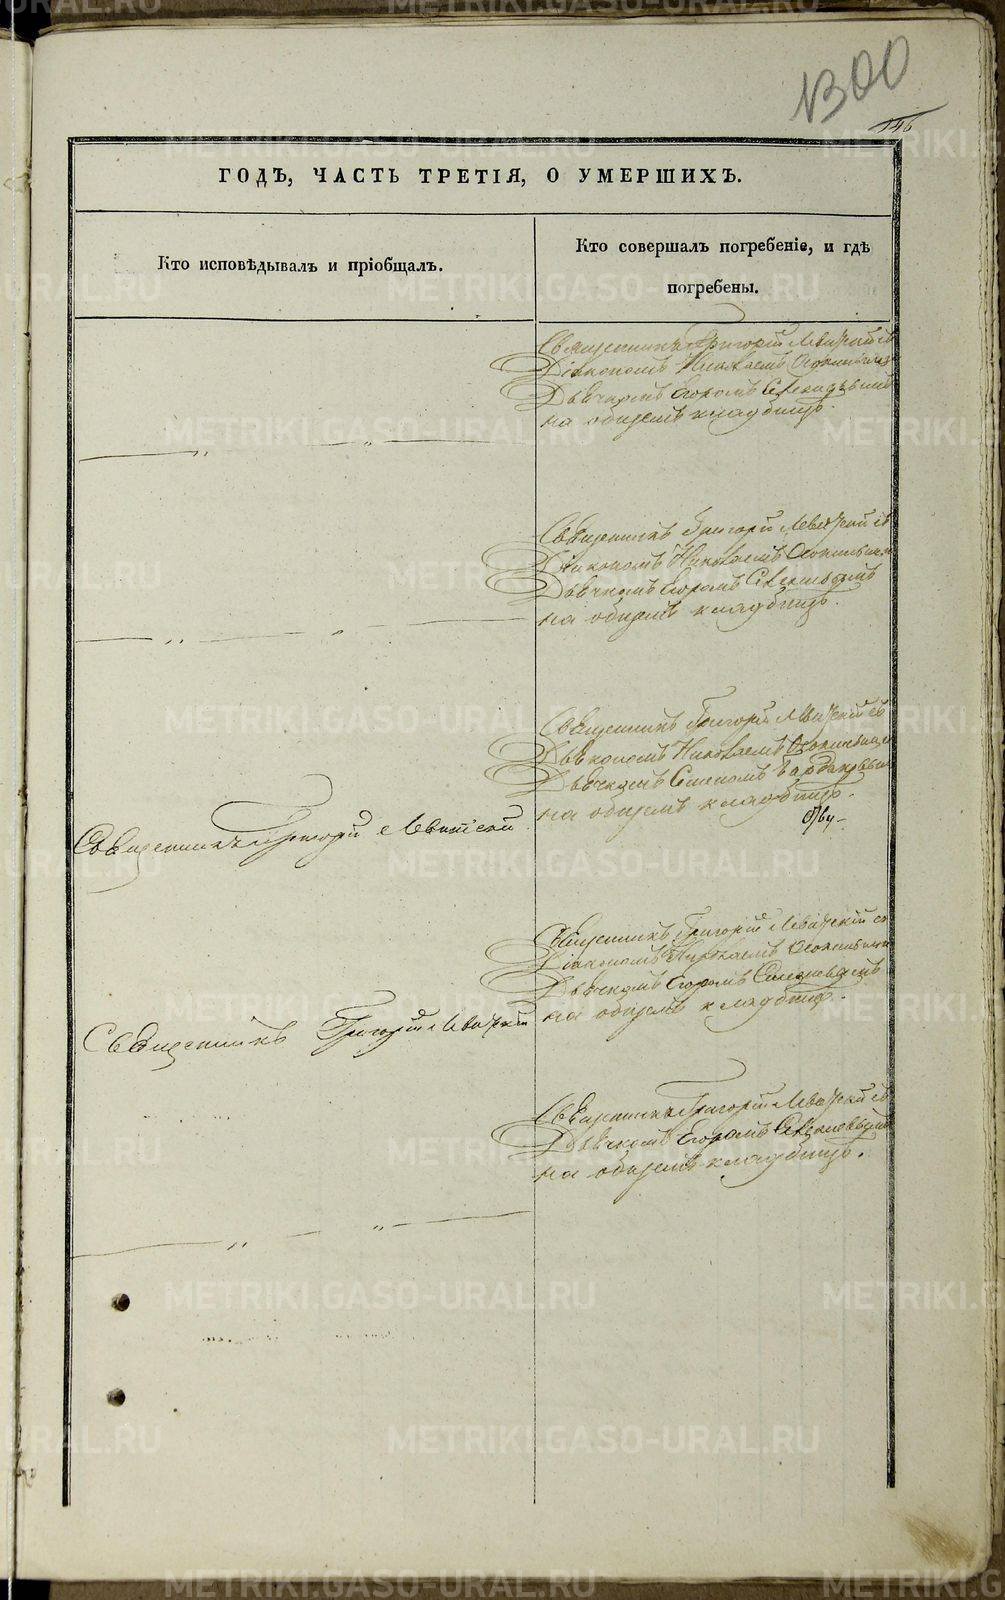 1300
146
ГОДЪ, ЧАСТЬ ТРЕТІЯ, О УМЕРШИХЪ.
Кто исповѣдывалъ и пріобщалъ.
Кто совершалъ погребеніе, и гдѣ
погребены.
Священникъ Григорій Левитскій съ
Діакономъ Николаемъ
Дьячкомъ Егоромъ
на общемъ кладбищѣ.
Священникъ Григорій Левитскій съ
Діакономъ Николаемъ
Дьячкомъ Егоромъ
на общемъ кладбищѣ.
Священникъ Григорій Левитскій съ
Діакономъ Николаемъ
Дьячкомъ Степаномъ
на общемъ кладбищѣ.
Священникъ Григорій Левитскій
Священникъ Григорій Левитскій со
Діакономъ Николаемъ
Дьячкомъ Егоромъ
на общемъ кладбищѣ.
Священникъ Григорій Левитскій
Священникъ Григорій Левитскій съ
Дьячкомъ Егоромъ
на общемъ кладбищѣ.
METRIKI.GASO-URAL.RU